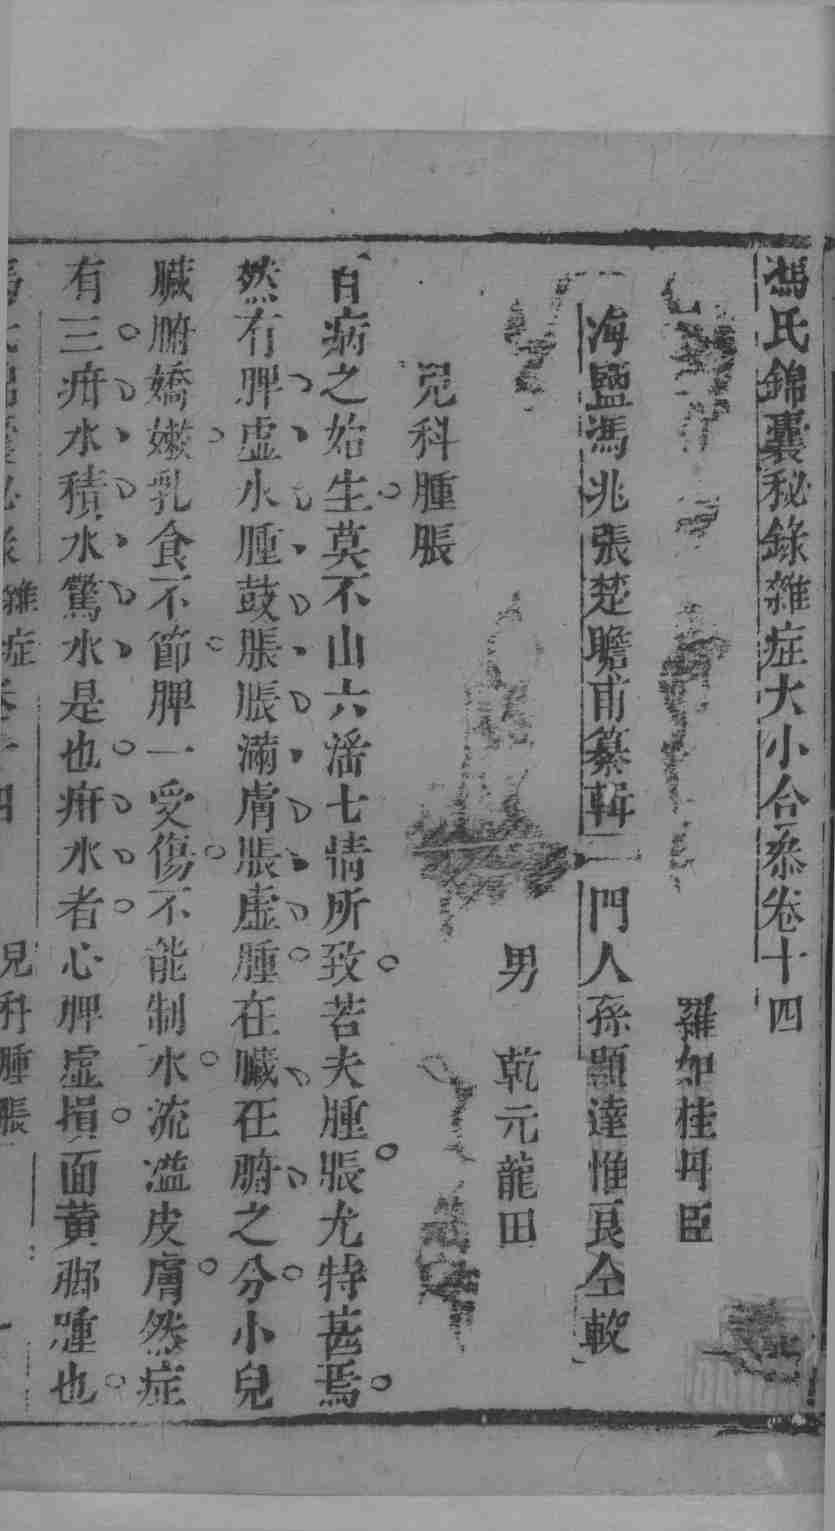 馮氏錦囊秘錄雜症大小合叅卷十四
羅如桂丹臣
海鹽馮兆張楚瞻甫纂輯 門人孫顯達惟良仝較
男 乾元龍田
兒科腫脹
百病之始生莫不由六淫七情所致若夫腫脹尤特甚焉
然有脾虛水腫鼓脹脹滿膚脹虛腫在臟在腑之分小兒
臟腑嬌嫩乳食不節脾一受傷不能制水流濫皮膚然症
有三疳水積水驚水是也疳水者心脾虛損面黃腳踵也
馮氏錦囊秘錄 雜症卷十四 兒科腫脹 一